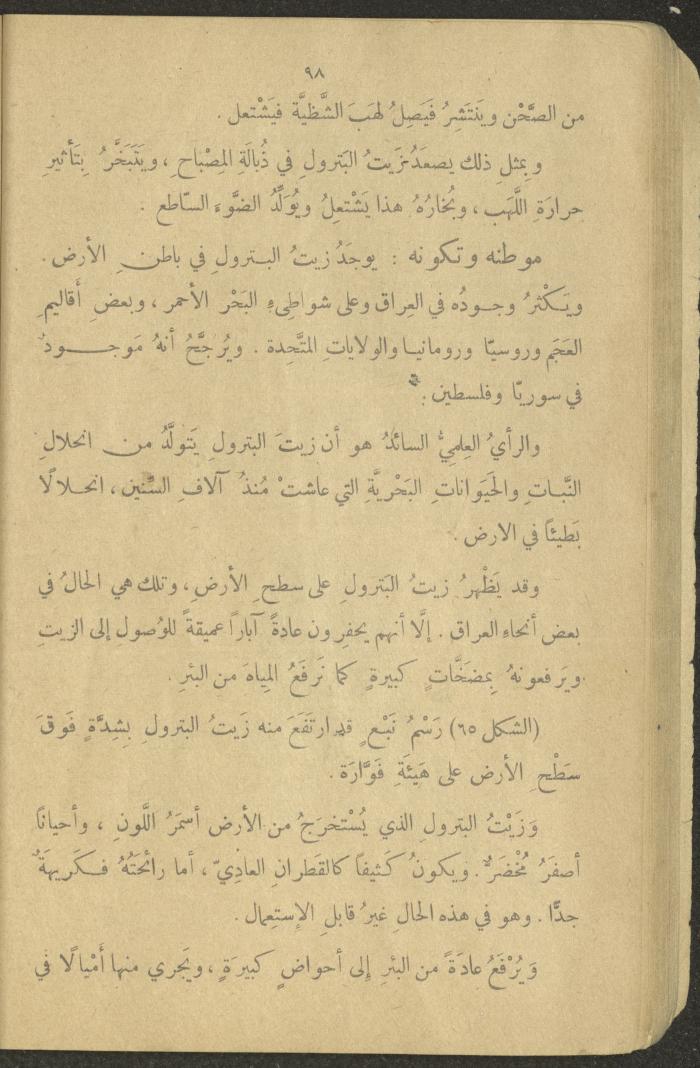 ٩٨
من الصَّحْن ويَنتَشِرُ فَيَصِلُ لهَبَ الشَّظيَّة فيَشْتعل .
وبمثلِ ذلك يصعَدُ زَيتُ البَترولِ في ذُبالَةِ المِصْباحِ ، ويَتَبَخَّرُ بِتَأثيرِ
حرارَةِ اللَّهَب ، وبُخارُهُ هذا يَشْتعلُ ويُوَلِّدُ الضَّوءَ السّاطع .
موطنه وتكونه : يوجَدُ زيتُ البترولِ في باطنِ الأرض .
ويَكْثرُ وجودُه في العِراق وعلى شواطِىءِ البَحْر الأحمر ، وبعضِ أَقاليمِ
العَجَم وروسيّا ورومانيا والولاياتِ المتَّحِدة . ويُرجَّحُ أنهُ مَوجودٌ
في سوريّا وفلسطين .
والرأيُ العِلميُّ السائدُ هو أن زيتَ البترولِ يَتولَّدُ من انحلالِ
النَّباتِ والحَيَواناتِ البَحْريَّةِ التي عاشتْ مُنذُ آلافِ السِّنين ، انحلالًا
بَطيئاً في الارض .
وقد يَظْهرُ زيتُ البَترولِ على سطحِ الأرضِ ، وتلك هي الحالُ في
بعض أنحاءِ العراق . إلَّا أنهم يحفِرون عادةً آباراً عميقةً للوُصولِ إلى الزيتِ
ويَرفعونهُ بِمضَخَّاتٍ كبيرةٍ كما نَرفَعُ المِياهَ من البئرِ .
(الشكل ٦٥) رَسْمُ نَبْعٍ قد ارتفَعَ منه زَيتُ البترولِ بِشِدَّةٍ فَوقَ
سَطْحِ الأرض على هَيئَةِ فَوَّارَة .
وَزَيْتُ البترولِ الذي يُسْتخرَجُ من الأرض أسمَرُ اللَّونِ ، وأحيانًا
أصفَرُ مُخْضَرٌّ . ويكونُ كَثيفاً كالقَطران العاديّ ، أما رائحَتُهُ فكَريهَةٌ
جدًّا . وهو في هذه الحالِ غيرُ قابلِ الإستِعمال .
وَيُرْفَعُ عادَةً من البئرِ إلى أحواضٍ كبيرَةٍ ، ويَجري منها أَمْيالًا في